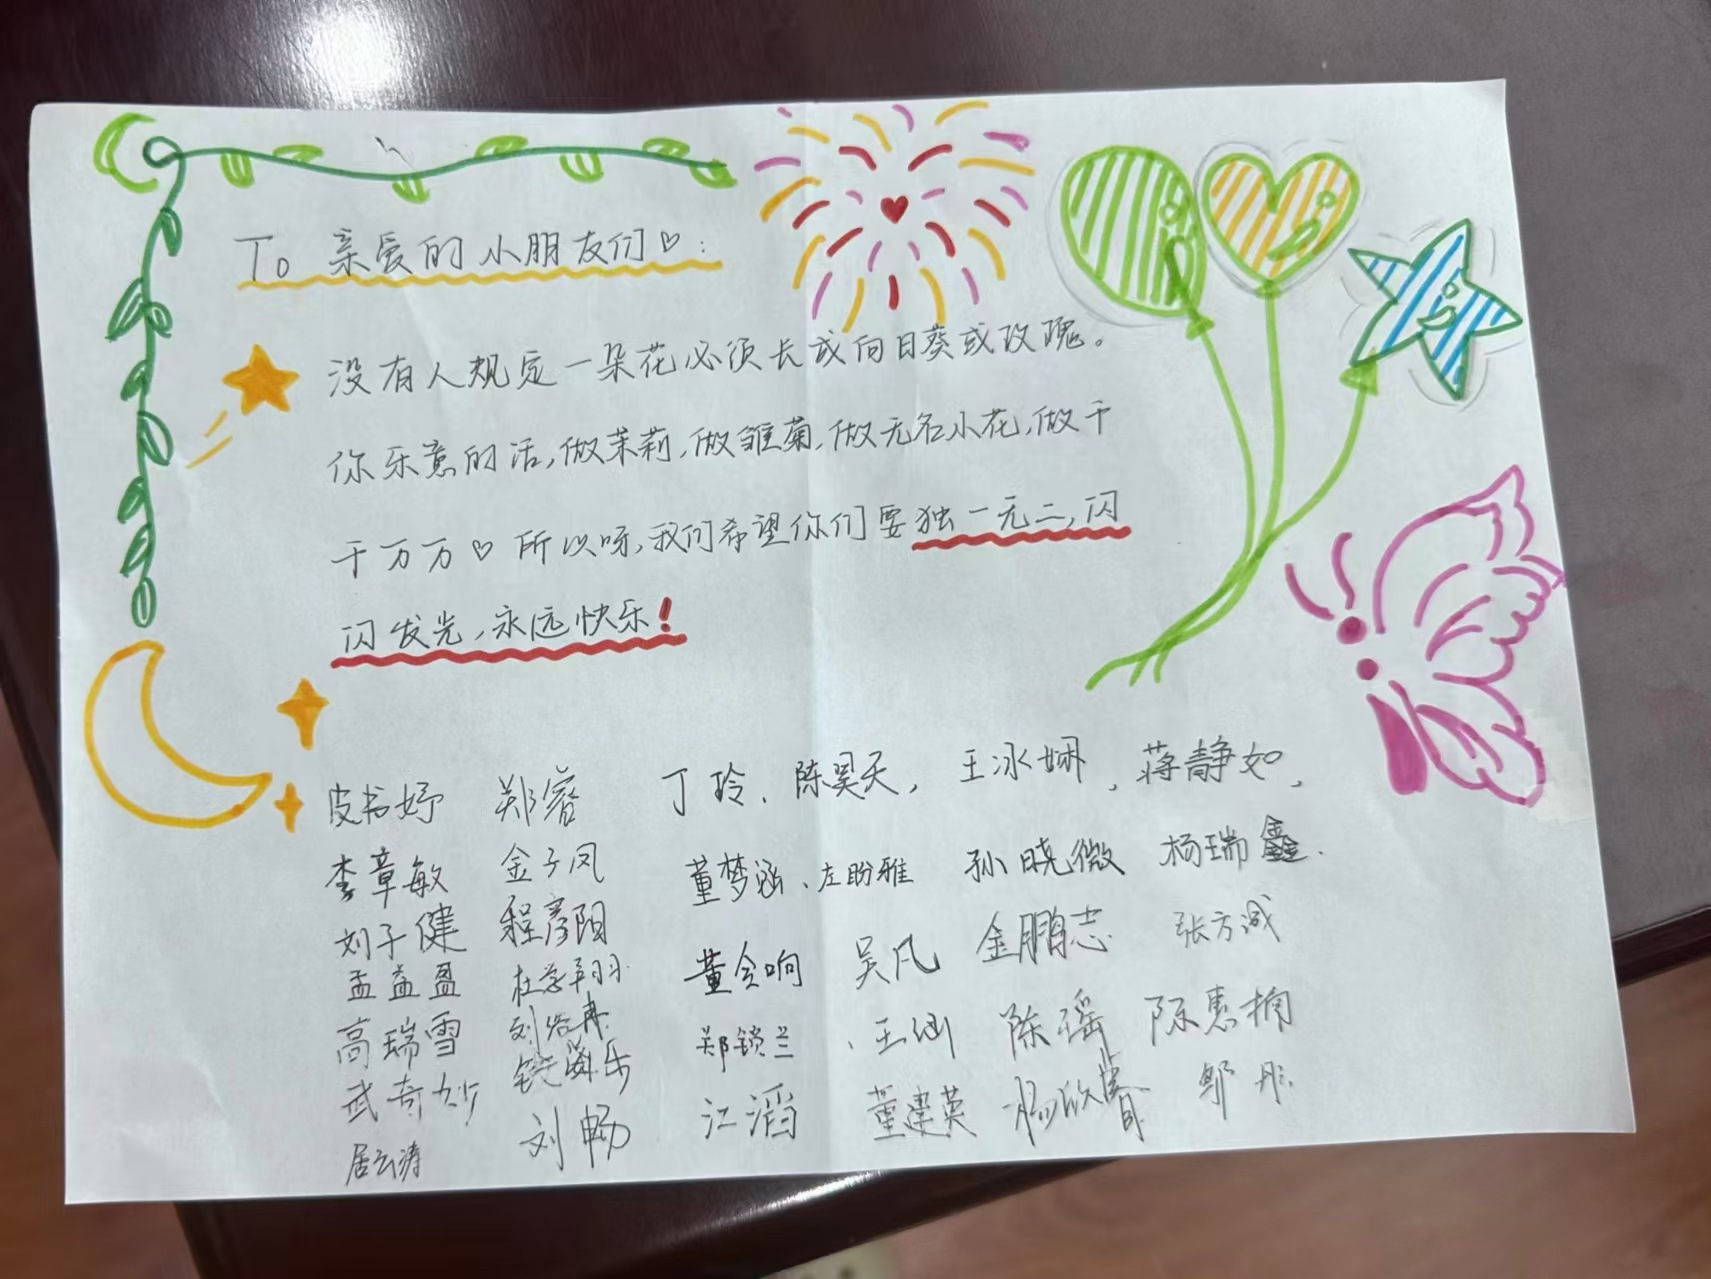 To 亲爱的小朋友们♡:
没有人规定一朵花必须长成向日葵或玫瑰。
你乐意的话,做茉莉,做雏菊,做无名小花,做千
千万万♡ 所以呀,我们希望你们要独一无二,闪
闪发光,永远快乐!
皮书妤 郑睿 丁玲、陈昊天, 王冰娴, 蒋静如,
李章敏 金子凤 董梦涵、左盼雅 孙晓微 杨瑞鑫.
刘子健 程彦阳 董会响 吴凡 金鹏志 张方诚
孟益盈 杜学翔
高瑞雪 郑锁兰、王仙 陈瑶 陈惠楠
武奇妙 刘畅 江滔 董建英 杨欣睿 郇彤
居云涛